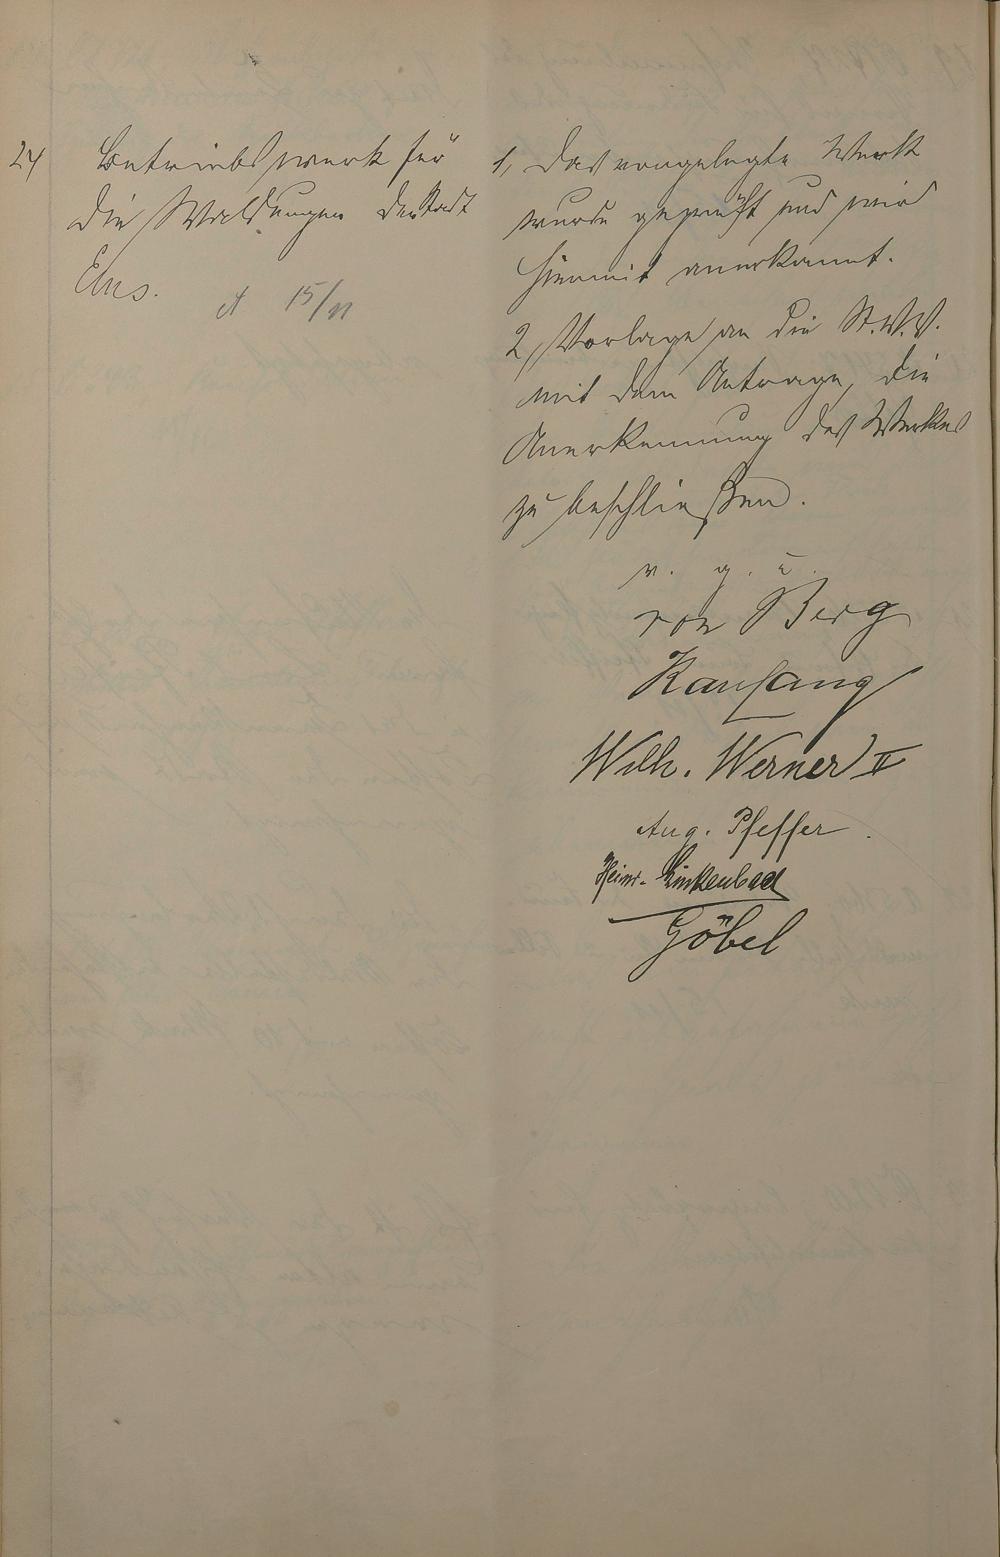 24
Betriebswerk für
die Waldungen der Stadt
Ems.
15/11
1, Das vorgelegte Werk
wurde geprüft und wird
hiermit anerkannt.
2, Vorlage an die St.V.V.
mit dem Antrage, die
Anerkennung des Werkes
zu beschließen.
v. g. u.
von Berg
Kaufang
Wilh. Werner II
Aug. Pfeffer.
Heinr. Linkenbach
Göbel